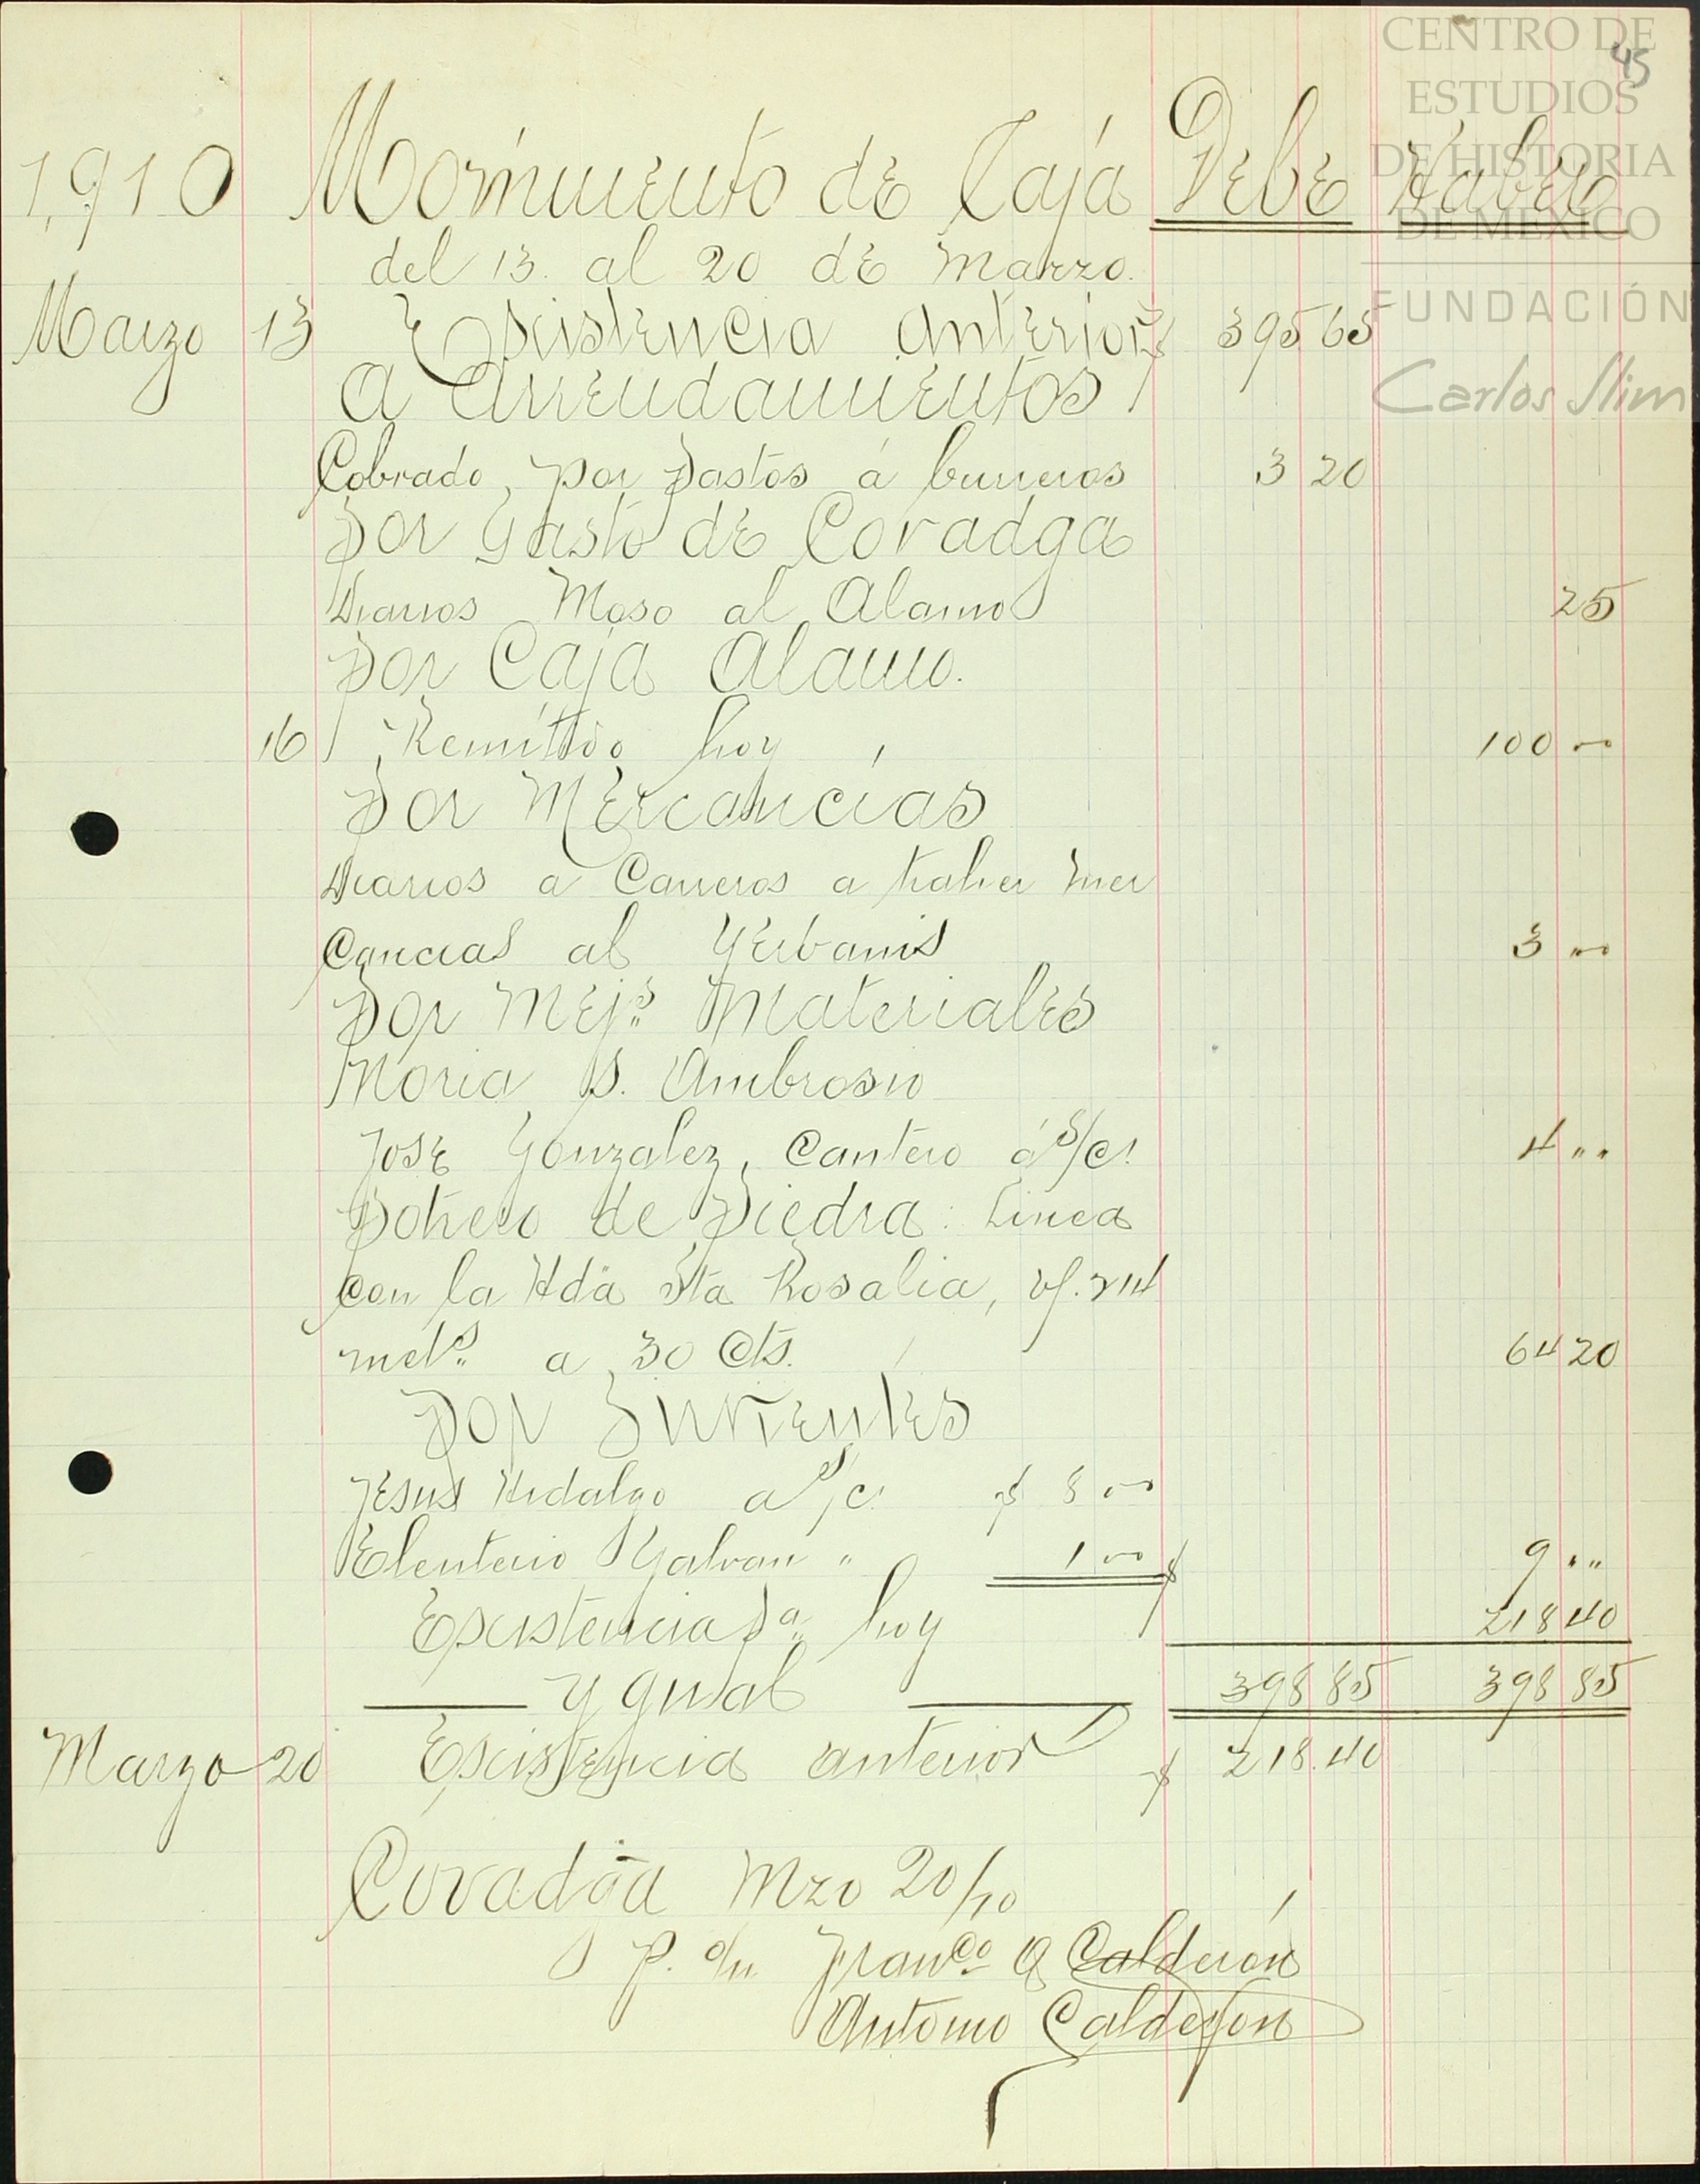 CENTRO DE
ESTUDIOS
DE HISTORIA
DE MÉXICO
FUNDACIÓN
Carlos Slim
45
1,910 Movimiento de Caja Debe Haber
del 13. al 20 de Marzo.
Marzo 13 Existencia anterior $ 395 65
a Arrendamientos
Cobrado, por pastos á burreros 3 20
Por Gasto de Covadga
Diarios Moso al Alamo 25
Por Caja Alamo.
16 Remitido hoy 100 "
Por Mercancías
Diarios a Carreros a traher mer
cancias al Yerbanis 3 "
Por Mejs. Materiales
Noria S. Ambrosio
José Gonzalez, Cantero á s/c. 4 "
Potrero de Piedra: Linea
con la Hda Sta Rosalia, vf. 214
mets. a 30 Cts. 64 20
Por Sirvientes
Jesus Hidalgo a s/c. $ 8 "
Eleuterio Galvan " 1 " $ 9 "
Existencia pa. hoy 218 40
Ygual 398 85 398 85
Marzo 20 Existencia anterior $ 218.40
Covadga Mzo 20/10
P. Franco Q Calderón
Antonio Calderón